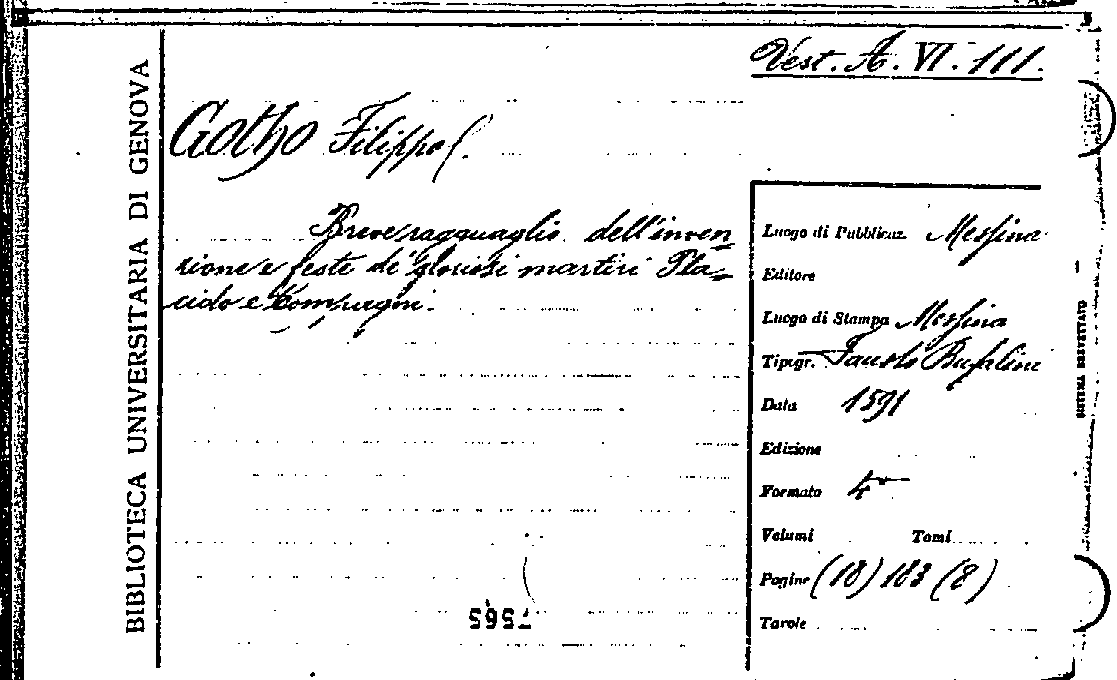 Vest. A. VI. 111.
BIBLIOTECA UNIVERSITARIA DI GENOVA
Gotho Filippo
Breve ragguaglio dell'inven=
zione e feste de' gloriosi martiri Pla=
cido e Compagni.
Luogo di Pubblicaz. Messina
Editore
Luogo di Stampa Messina
Tipogr. Fausto Bufalini
Data 1591
Edizione
Formato 4°
Volumi Tomi
Pagine (18) 183 (8)
Tavole
SISTEMA BREVETTATO
7565